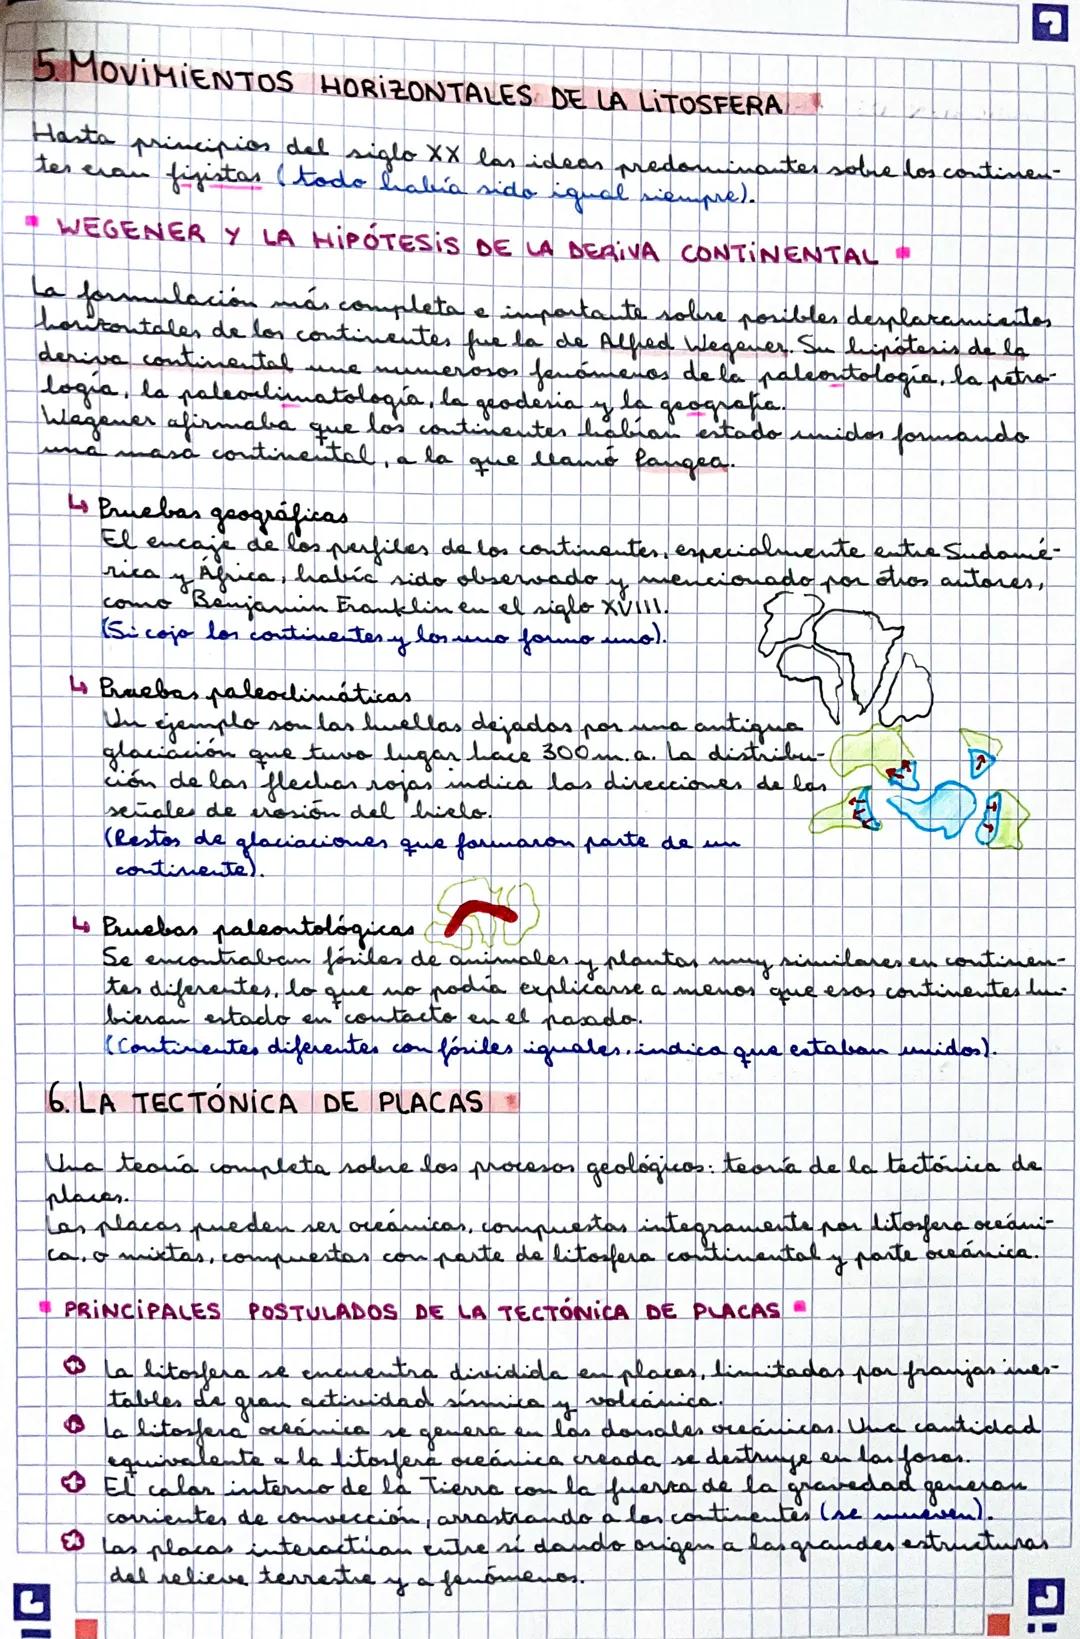 5. MOVIMIENTOS HORIZONTALES DE LA LITOSFERA
Hasta principios del siglo XX las ideas predominantes sobre los continen-
tes eran fijistas (todo había sido igual siempre).
WEGENER Y LA HIPÓTESIS DE LA DERIVA CONTINENTAL
La formulación más completa e importante sobre posibles desplazamientos
horizontales de los continentes fue la de Alfred Wegener. Su hipótesis de la
deriva continental une numerosos fenómenos de la paleontología, la petro-
logía, la paleoclimatología, la geodesia y la geografía.
Wegener afirmaba que los continentes habían estado unidos formando
una masa continental, a la que llamó Pangea.
↳ Pruebas geográficas
El encaje de los perfiles de los continentes, especialmente entre Sudamé-
rica y África, había sido observado y mencionado por otros autores,
como Benjamin Franklin en el siglo XVIII.
(Si cojo los continentes y los uno formo uno).
↳ Pruebas paleoclimáticas
Un ejemplo son las huellas dejadas por una antigua
glaciación que tuvo lugar hace 300 m.a. La distribu-
ción de las flechas rojas indica las direcciones de las
señales de erosión del hielo.
(Restos de glaciaciones que formaron parte de un
continente).
↳ Pruebas paleontológicas
Se encontraban fósiles de animales y plantas muy similares en continen-
tes diferentes, lo que no podía explicarse a menos que esos continentes hu-
bieran estado en contacto en el pasado.
(Continentes diferentes con fósiles iguales, indica que estaban unidos).
6. LA TECTÓNICA DE PLACAS
Una teoría completa sobre los procesos geológicos: teoría de la tectónica de
placas.
Las placas pueden ser oceánicas, compuestas integramente por litosfera oceáni-
ca, o mixtas, compuestas con parte de litosfera continental y parte oceánica.
PRINCIPALES POSTULADOS DE LA TECTÓNICA DE PLACAS
La litosfera se encuentra dividida en placas, limitadas por franjas ines-
tables de gran actividad sísmica y volcánica.
La litosfera oceánica se genera en las dorsales oceánicas. Una cantidad
equivalente a la litosfera oceánica creada se destruye en las fosas.
El calor interno de la Tierra con la fuerza de la gravedad generan
corrientes de convección, arrastrando a los continentes (se mueven).
Las placas interactúan entre sí dando origen a las grandes estructuras
del relieve terrestre y a fenómenos.